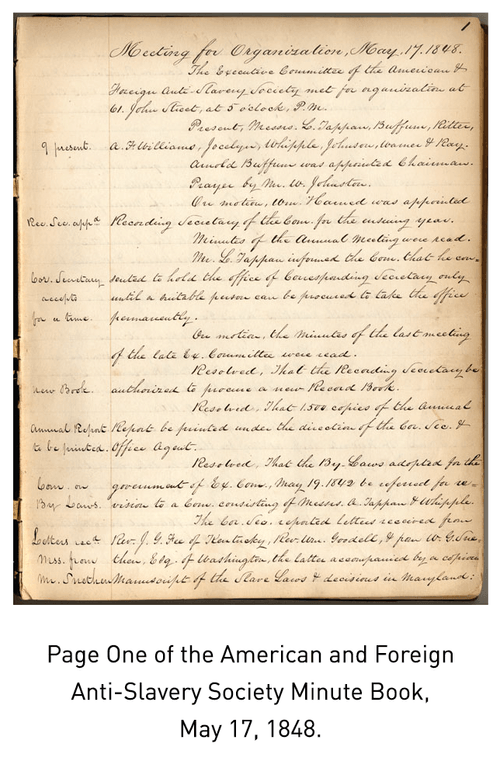 1
Meeting for Organization, May. 17. 1848.
The Executive Committee of the American &
Foreign Anti-Slavery Society met for organization at
61. John Street, at 5 o'clock, P.M.
Present, Messrs. L. Tappan, Buffum, Ritter,
9 present. A. F. Williams, Jocelyn, Whipple, Johnson, Warner & Ray.
Arnold Buffum was appointed Chairman.
Prayer by Mr. W. Johnston.
On motion, Wm. Harned was appointed
Rec. Sec. app.d Recording Secretary of the Com. for the ensuing year.
Minutes of the Annual Meeting were read.
Mr. L. Tappan informed the Com. that he con-
Cor. Secretary sented to hold the office of Corresponding Secretary only
accepts until a suitable person can be procured to take the office
for a time. permanently.
On motion, the minutes of the last meeting
of the late Ex. Committee were read.
Resolved, That the Recording Secretary be
new Book. authorized to procure a new Record Book.
Resolved, That 1.500 copies of the Annual
Annual Report Report be printed under the direction of the Cor. Sec. &
to be printed. Office Agent.
Resolved, That the By-Laws adopted for the
Com. on government of Ex. Com., May 19. 1842 be referred for re-
By Laws. vision to a Com. consisting of Messrs. A. Tappan & Whipple.
The Cor. Sec. reported letters received from
Letters rec.d Rev. J. G. Fee of Kentucky, Rev. Wm. Goodell, & from W. G. Sne-
Mss. from then, Esq. of Washington, the latter accompanied by a copious
Mr. Snethen Manuscript of the Slave Laws & decisions in Maryland:
Page One of the American and Foreign
Anti-Slavery Society Minute Book,
May 17, 1848.